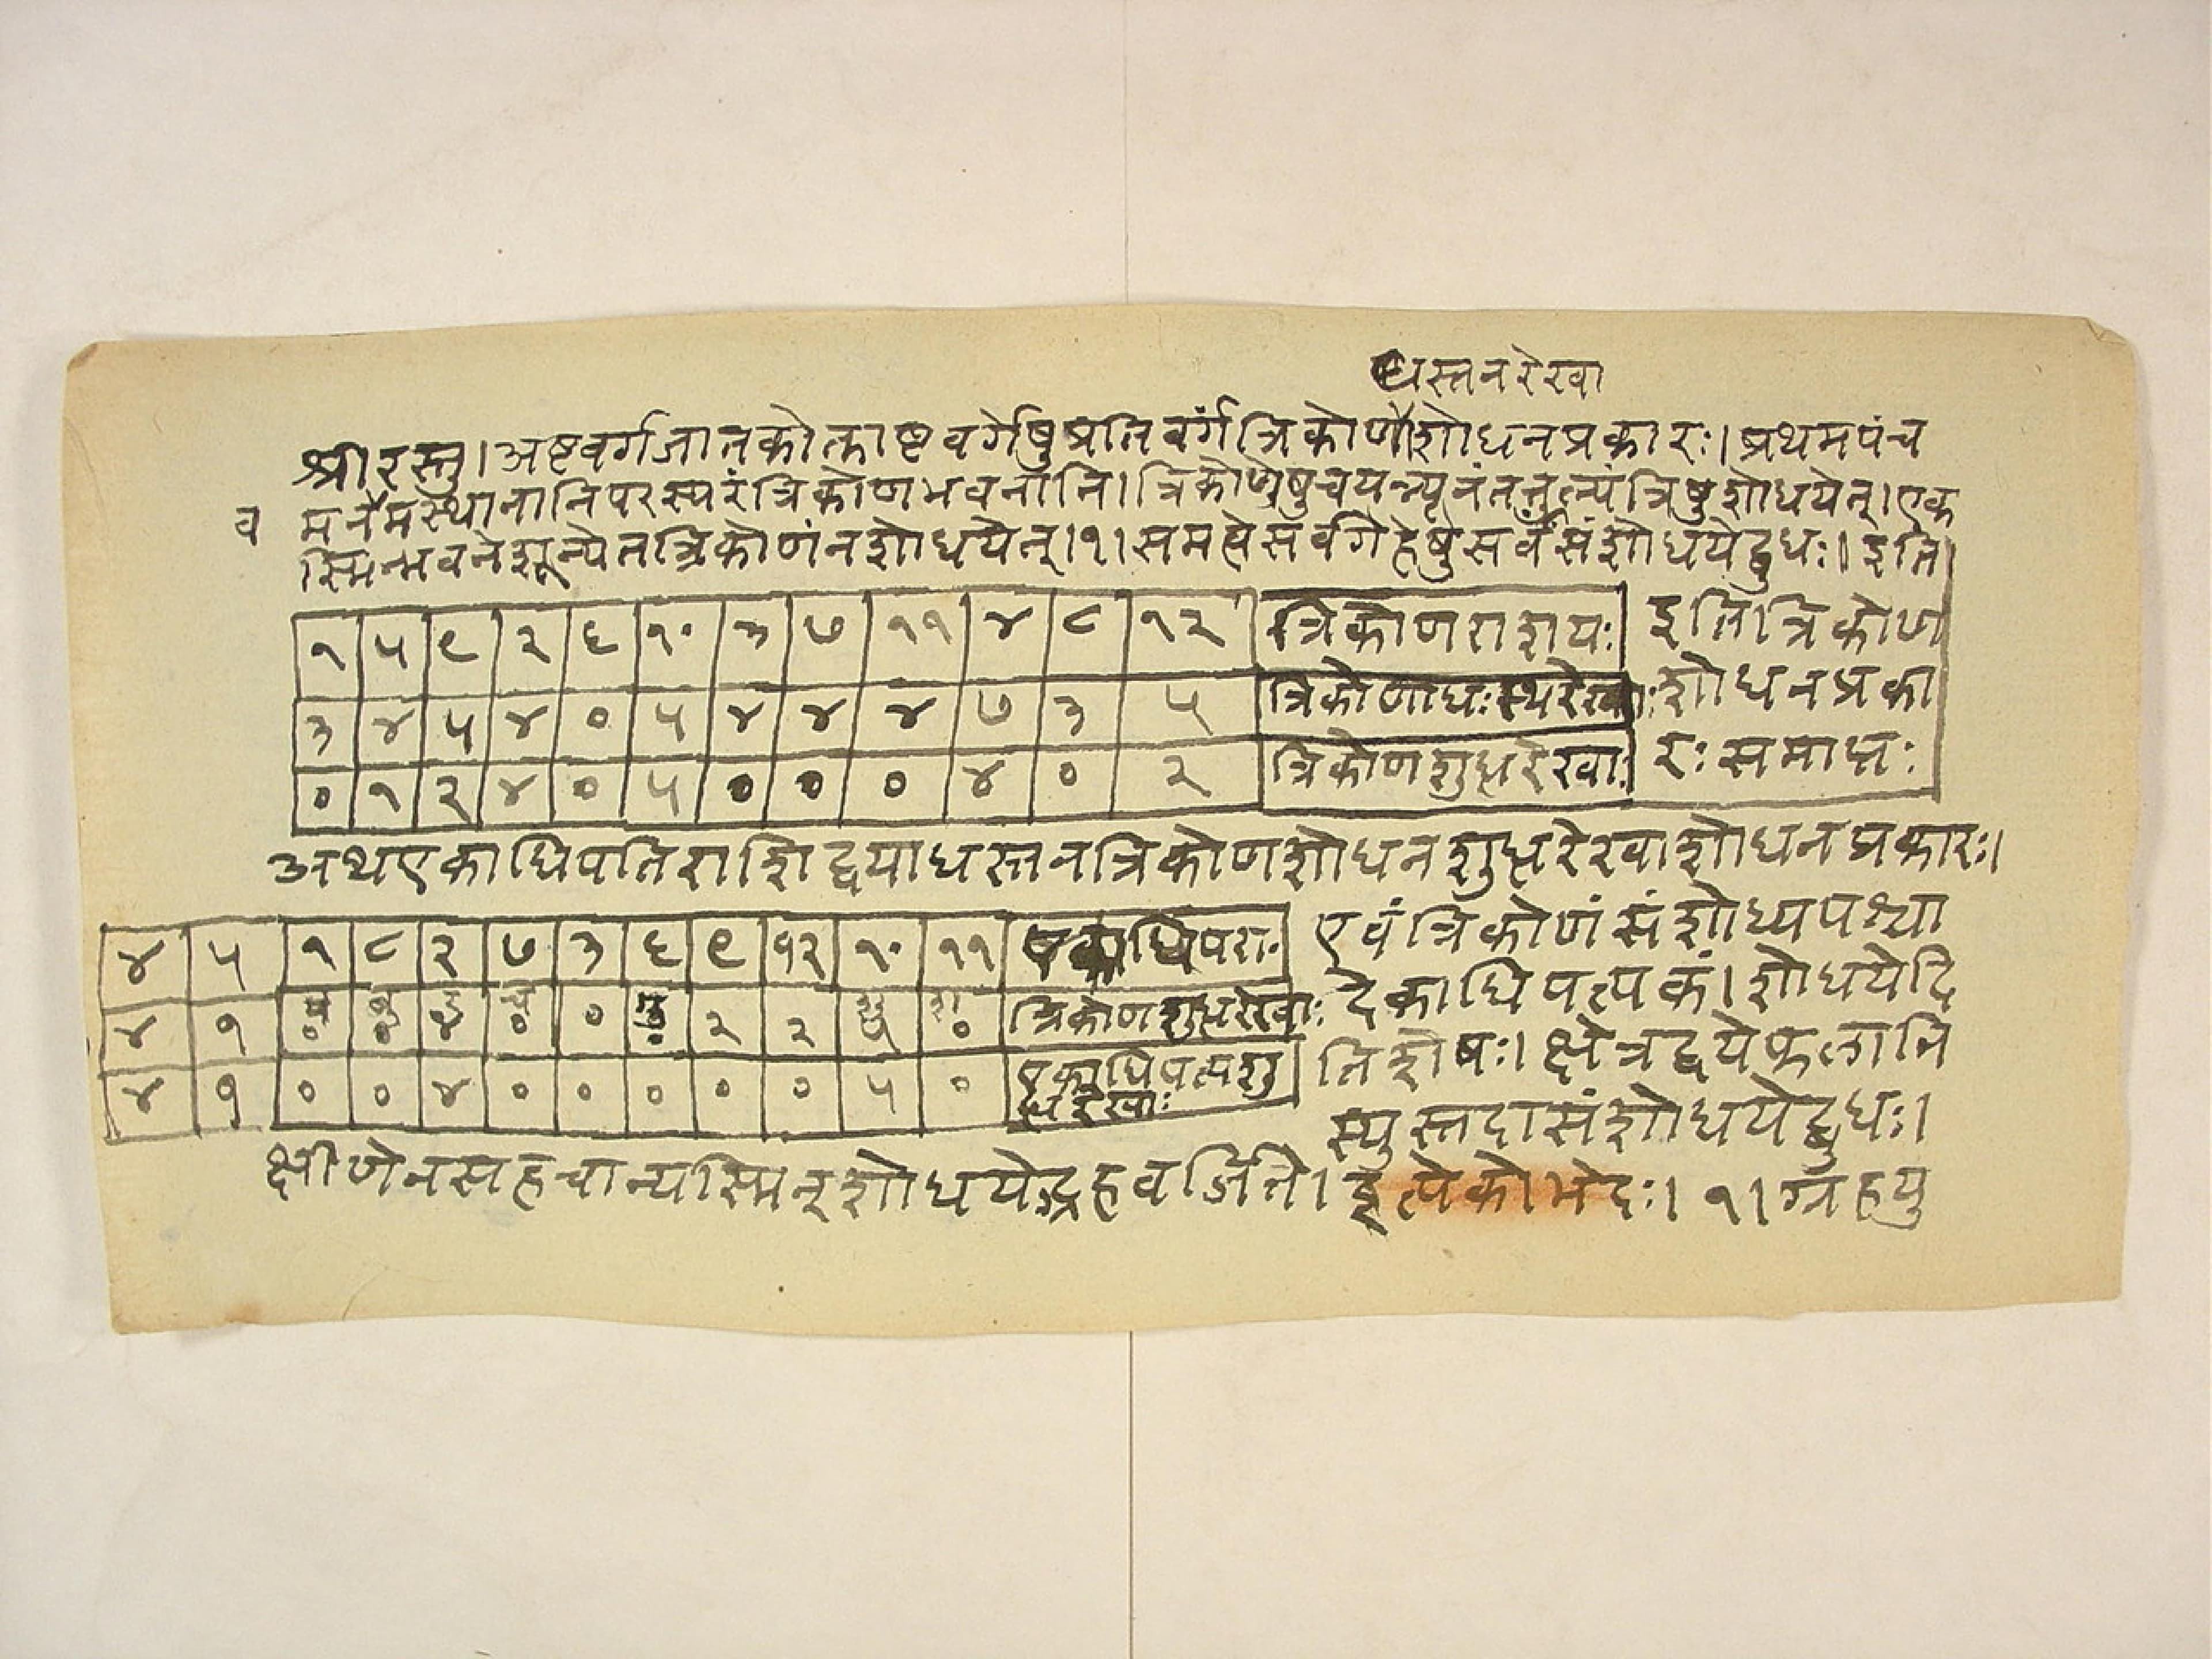 धस्तनरेखा
श्रीरस्तु। अष्टवर्गजातकोक्ताष्टवर्गेषुप्रतिवर्गंत्रिकोणशोधनप्रकारः। प्रथमपंच
व मनवमस्थानानिपरस्परंत्रिकोणभवनानि। त्रिकोणेषुचयन्न्यूनंतत्तुल्यंत्रिषुशोधयेत्। एक
स्मिन्भवनेशून्येतत्रिकोणंनशोधयेत्।१। समत्वेसर्वगेहेषुसर्वंसंशोधयेद्बुधः॥ इति।
१ ५ ९ २ ६ १० ३ ७ ११ ४ ८ १२ त्रिकोणराशयः इतित्रिकोण
३ ४ ५ ४ ० ५ ४ ४ ४ ७ ३ ५ त्रिकोणाधःस्थरेखाः शोधनप्रका
० १ २ ४ ० ५ ० ० ० ४ ० २ त्रिकोणशुद्धरेखाः रः समाप्तः
अथएकाधिपतिराशिद्वयाधस्तनत्रिकोणशोधनशुद्धरेखाशोधनप्रकारः।
४ ५ १ ८ २ ७ ३ ६ ९ १२ १० ११ एकाधिपरा० एवंत्रिकोणंसंशोध्यपश्चा
४ १ ० ० ४ ० ० ० २ २ ५ ० त्रिकोणशुद्धरेखाः देकाधिपत्यकं। शोधयेदि
४ १ ० ० ४ ० ० ० ० ० ५ ० एकाधिपत्यशु तिशेषः। क्षेत्रद्वयेफलानि
द्धरेखाः स्युस्तदासंशोधयेद्बुधः।
क्षीणेनसहचान्यस्मिन्शोधयेद्ग्रहवर्जिते। इत्येकोभेदः। १। ग्रहयु